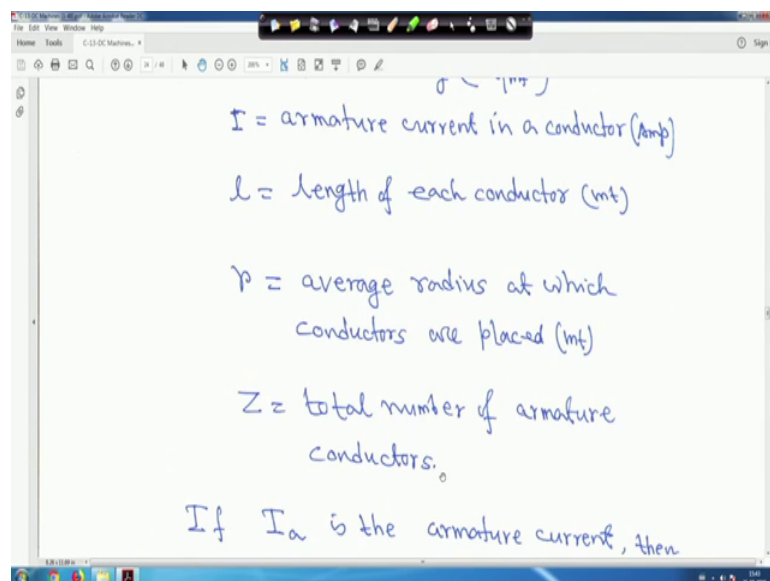 C-13-DC Machines (1-40).pdf - Adobe Acrobat Reader DC
File Edit View Window Help
Home Tools C-13-DC Machines... × Sign
I = armature current in a conductor (Amp)
l = length of each conductor (mt)
r = average radius at which
conductors are placed (mt)
Z = total number of armature
conductors.
If Ia is the armature current, then